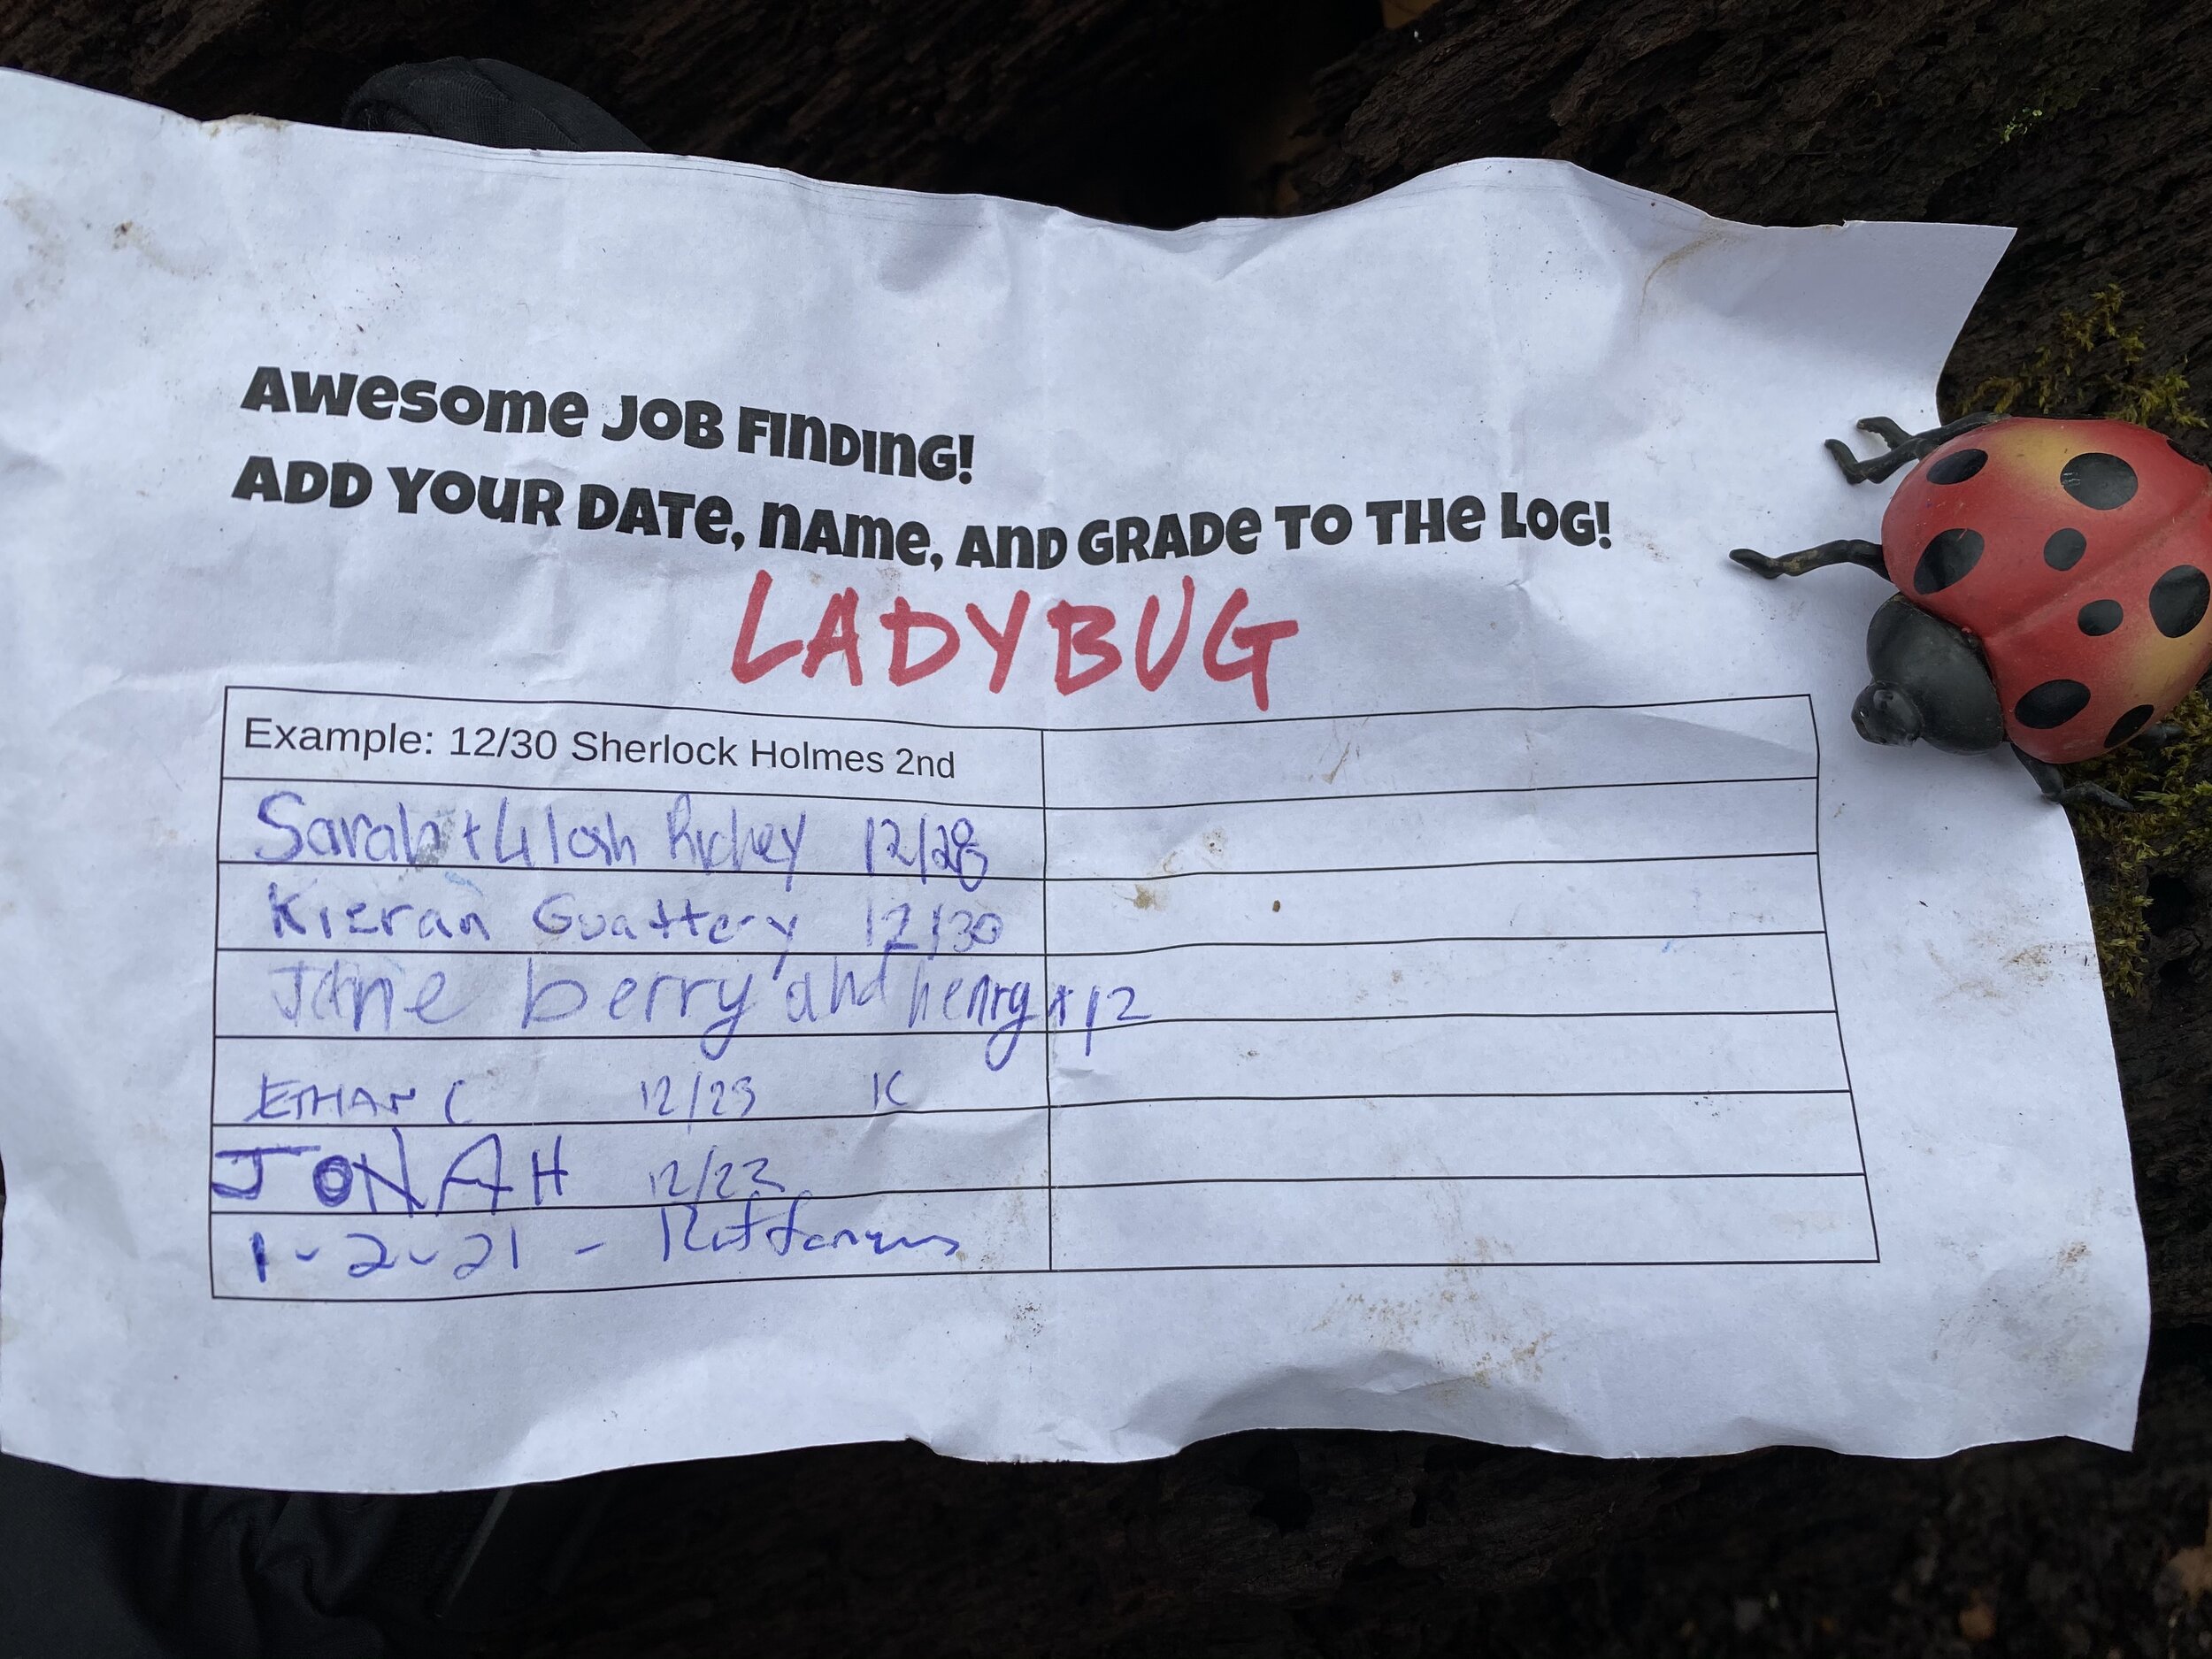 AWESOME JOB FINDING!
ADD YOUR DATE, NAME, AND GRADE TO THE LOG!
LADYBUG
Example: 12/30 Sherlock Holmes 2nd
Sarah + Lilah 12/28
Kieran Guattery 12/30
Jane berry and henry
ETHAN C 12/23 K
JONAH 12/23
1-2-21 -